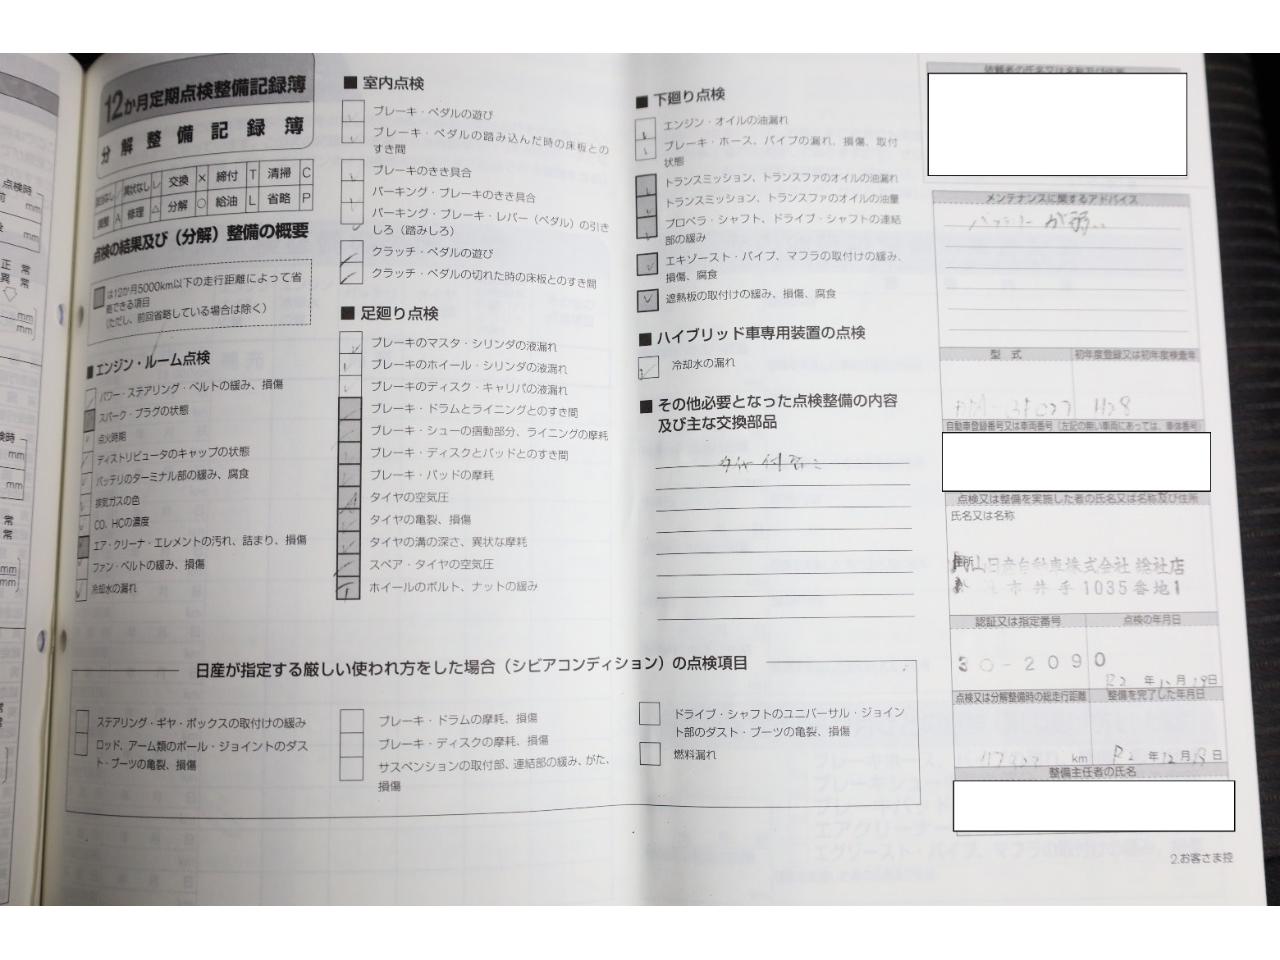 12か月定期点検整備記録簿
分解整備記録簿
交換 × 締付 T 清掃 C
調整 A 修理 △ 分解 ○ 給油 L 省略 P
点検の結果及び（分解）整備の概要
は12か月5000km以下の走行距離によって省
略できる項目
（ただし、前回省略している場合は除く）
■エンジン・ルーム点検
パワー・ステアリング・ベルトの緩み、損傷
スパーク・プラグの状態
点火時期
ディストリビュータのキャップの状態
バッテリのターミナル部の緩み、腐食
排気ガスの色
CO、HCの濃度
エア・クリーナ・エレメントの汚れ、詰まり、損傷
ファン・ベルトの緩み、損傷
冷却水の漏れ
■室内点検
ブレーキ・ペダルの遊び
ブレーキ・ペダルの踏み込んだ時の床板との
すき間
ブレーキのきき具合
パーキング・ブレーキのきき具合
パーキング・ブレーキ・レバー（ペダル）の引き
しろ（踏みしろ）
クラッチ・ペダルの遊び
クラッチ・ペダルの切れた時の床板とのすき間
■足廻り点検
ブレーキのマスタ・シリンダの液漏れ
ブレーキのホイール・シリンダの液漏れ
ブレーキのディスク・キャリパの液漏れ
ブレーキ・ドラムとライニングとのすき間
ブレーキ・シューの摺動部分、ライニングの摩耗
ブレーキ・ディスクとパッドとのすき間
ブレーキ・パッドの摩耗
タイヤの空気圧
タイヤの亀裂、損傷
タイヤの溝の深さ、異状な摩耗
スペア・タイヤの空気圧
ホイールのボルト、ナットの緩み
■下廻り点検
エンジン・オイルの油漏れ
ブレーキ・ホース、パイプの漏れ、損傷、取付
状態
トランスミッション、トランスファのオイルの油漏れ
トランスミッション、トランスファのオイルの油量
プロペラ・シャフト、ドライブ・シャフトの連結
部の緩み
エキゾースト・パイプ、マフラの取付けの緩み、
損傷、腐食
遮熱板の取付けの緩み、損傷、腐食
■ハイブリッド車専用装置の点検
冷却水の漏れ
■その他必要となった点検整備の内容
及び主な交換部品
メンテナンスに関するアドバイス
バッテリーが弱い
型式 初年度登録又は初年度検査年
H28
自動車登録番号又は車両番号（左記の無い車両にあっては、車体番号）
点検又は整備を実施した者の氏名又は名称及び住所
氏名又は名称
山日産自動車株式会社 総社店
市井手1035番地1
認証又は指定番号 点検の年月日
30-2090
R2 年 12 月 19 日
点検又は分解整備時の総走行距離 整備を完了した年月日
km R2 年 12 月 19 日
整備主任者の氏名
日産が指定する厳しい使われ方をした場合（シビアコンディション）の点検項目
ステアリング・ギヤ・ボックスの取付けの緩み
ロッド、アーム類のボール・ジョイントのダス
ト・ブーツの亀裂、損傷
ブレーキ・ドラムの摩耗、損傷
ブレーキ・ディスクの摩耗、損傷
サスペンションの取付部、連結部の緩み、がた、
損傷
ドライブ・シャフトのユニバーサル・ジョイン
ト部のダスト・ブーツの亀裂、損傷
燃料漏れ
2.お客さま控